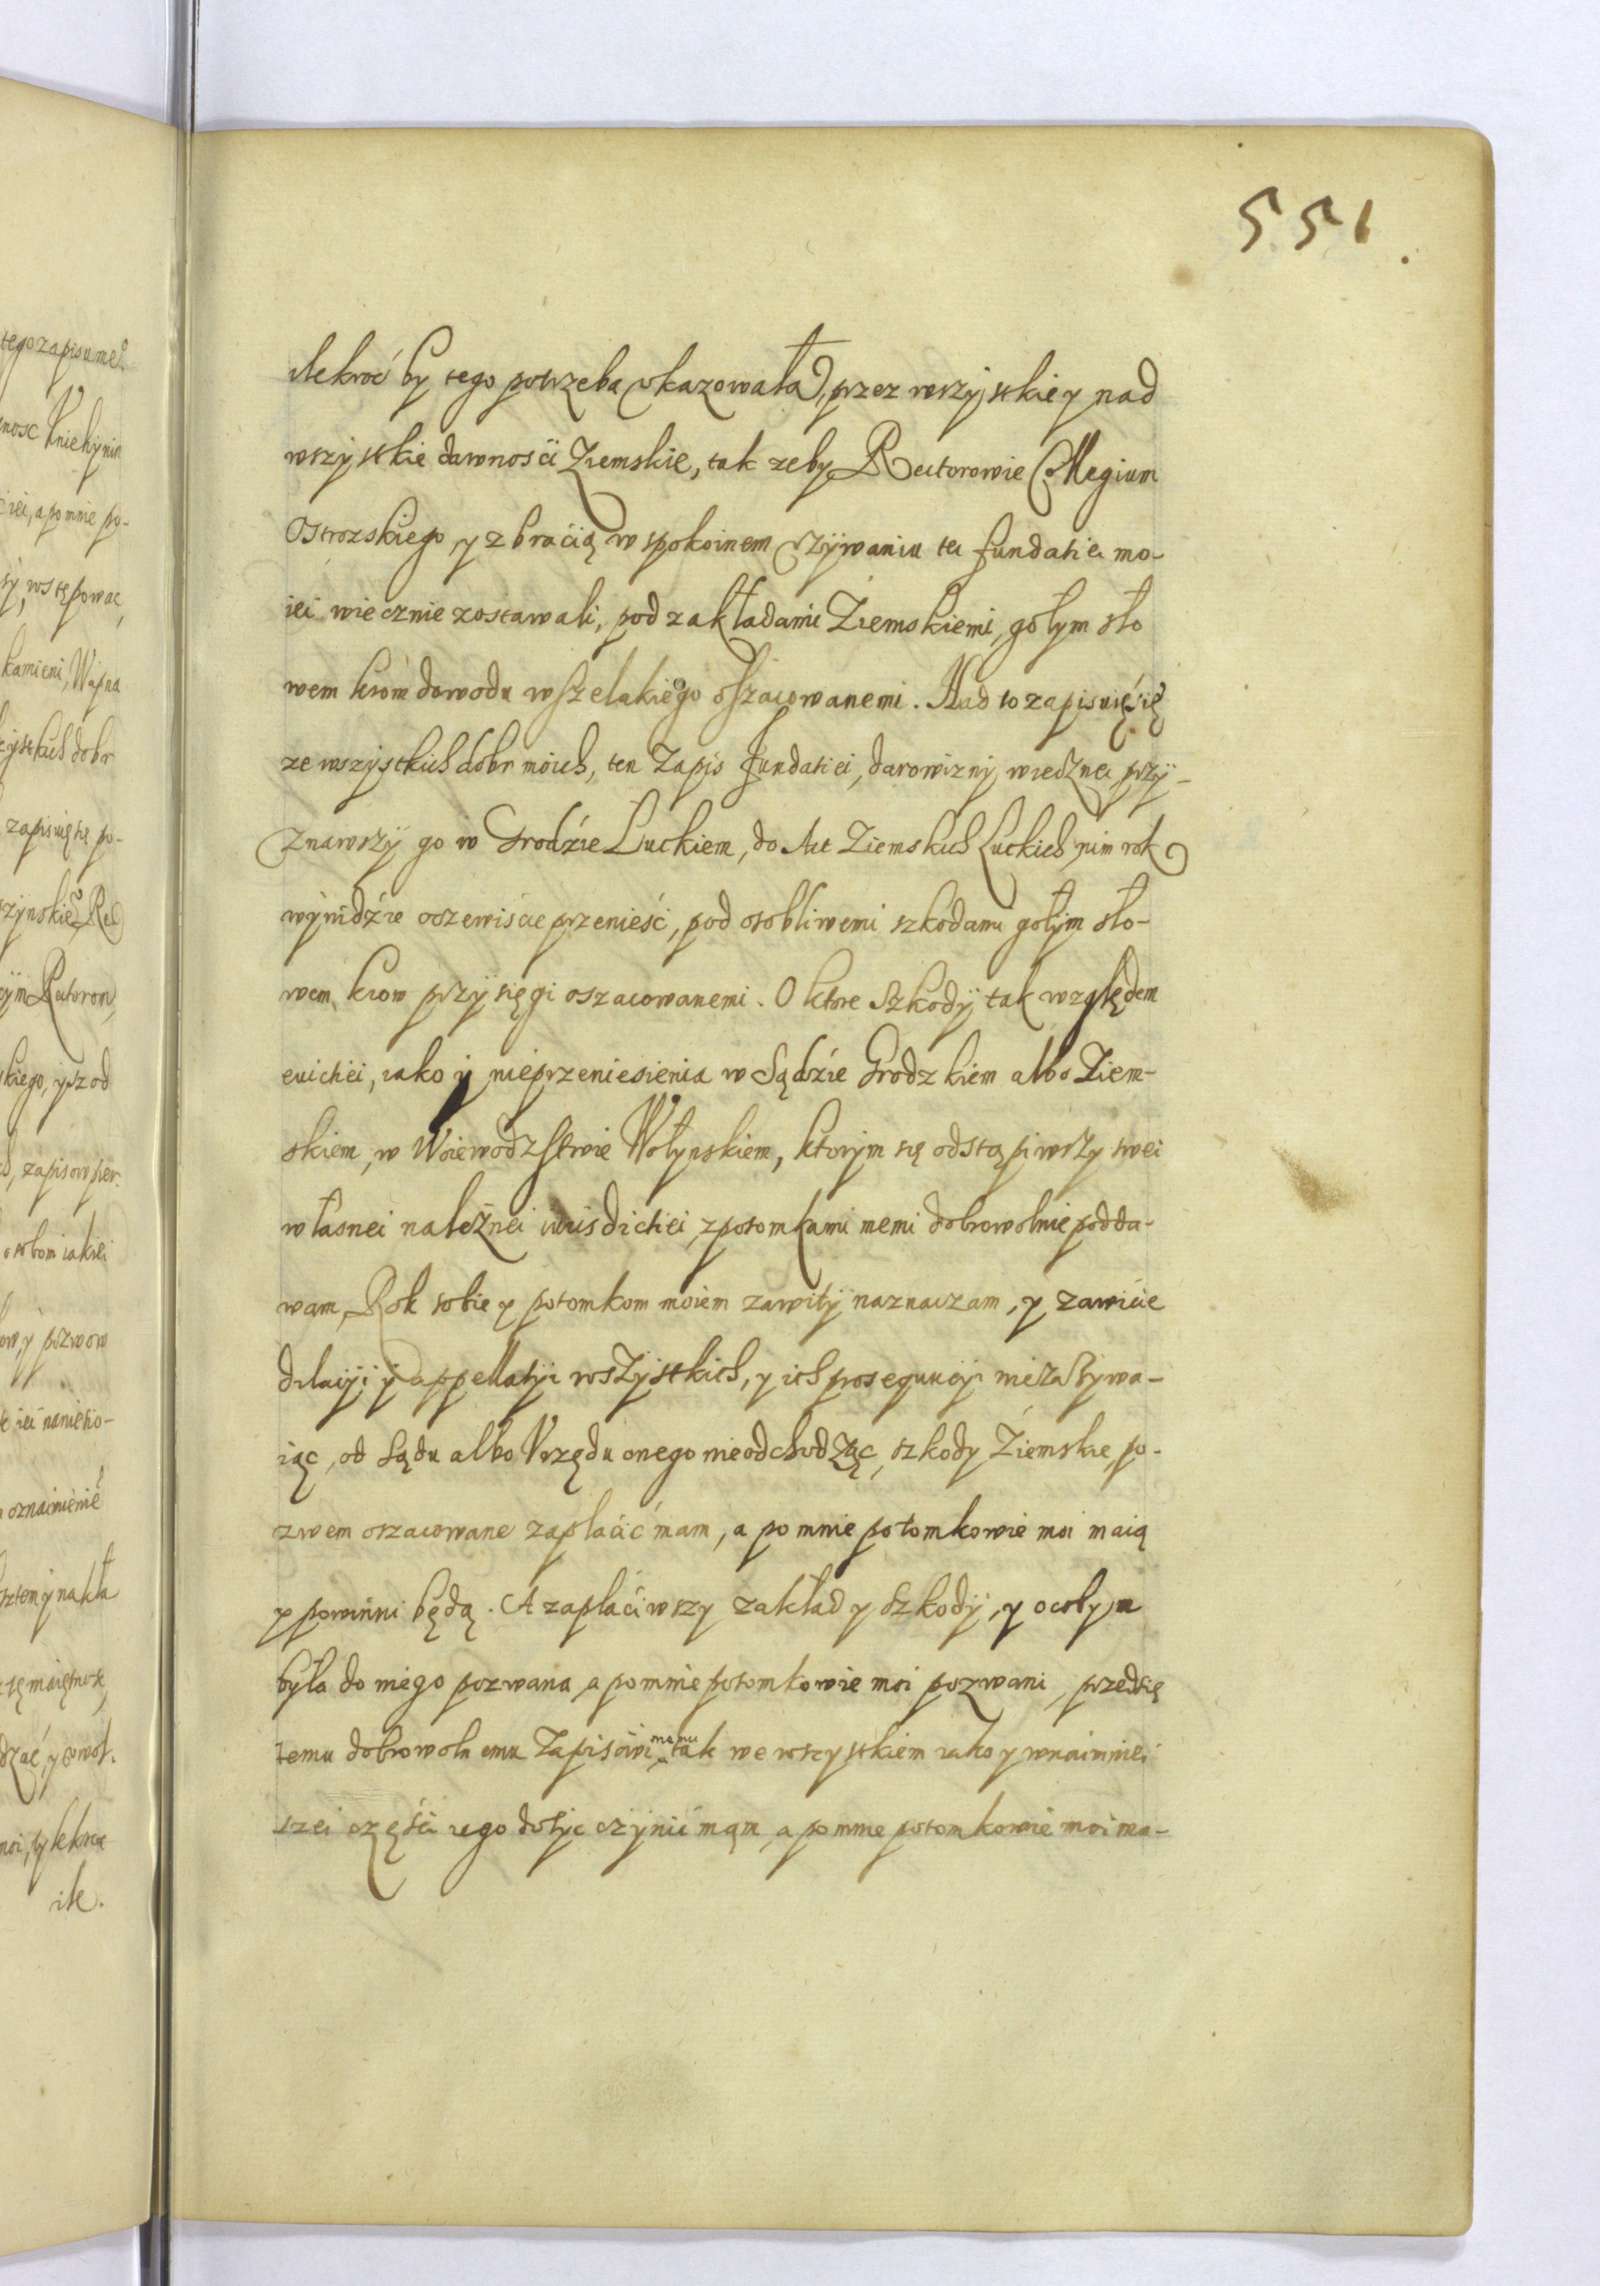 551.
ilekroć by tego potrzeba vkazowała, przez wszystkie y nad
wszystkie dawnosci Ziemskie, tak zeby Rectorowie Collegium
Ostrozskiego y z bracią w spokoinem vzywaniu tei fundatiei mo-
iei wiecznie zostawali, pod zakładami Ziemskiemi, gołym sło
wem krom dowodu wszelakiego oszacowanemi. Nad to zapisuię się
ze wszystkich dobr moich, ten Zapis fundatiei, darowizny wiecznei, przy-
znawszy go w Grodzie Luckiem, do Act Ziemskich Luckich, nim rok
wynidzie oczewiscie przenieść, pod osobliwemi szkodami gołym sło-
wem, krom przysięgi oszacowanemi. O ktore Szkody tak względem
euictiei, iako y nieprzeniesienia w Sądzie Grodzkiem albo Ziem-
skiem, w Woiewodzstwie Wołynskiem, ktorym się odstąpiwszy swei
własnei należnei iurisdictiei, z potomkami memi dobrowolnie podda-
wam, Rok sobie y potomkom moiem zawity naznaczam, y zawicie
dilacyi y appellatyi wszystkich, y ich prosequucyi nie zażywa-
iąc, od Sądu albo Vrzędu onego nie odchodząc, szkody Ziemskie, po-
zwem oszacowane zapłacić mam, a po mnie potomkowie moi maią
y powinni będą. A zapłaciwszy zakład y szkody, y o cobym
była do niego pozwana, a po mnie potomkowie moi pozwani, przedsię
temu dobrowolnemu Zapisowi memu tak we wszystkiem iako y w naimniei
szei części iego dosyc czynić mam, a po mnie potomkowie moi ma-